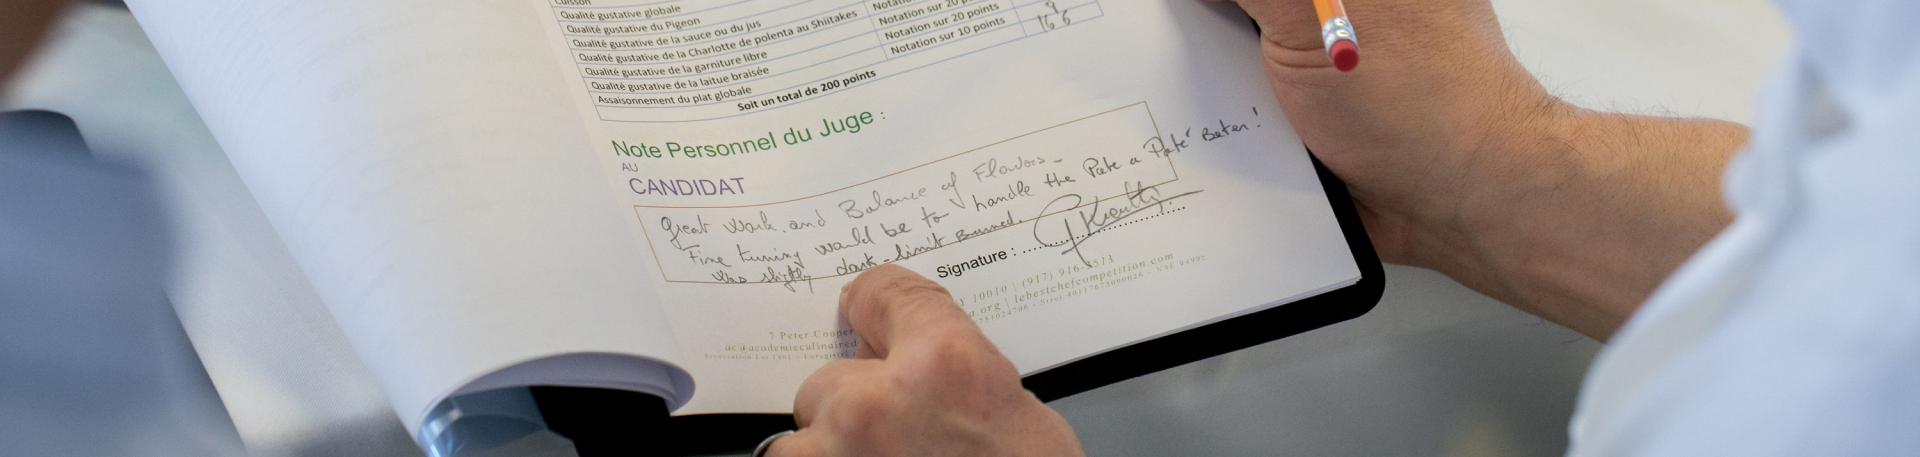 Cuisson
Qualité gustative globale
Qualité gustative du Pigeon
Qualité gustative de la sauce ou du jus Notation sur 20
Qualité gustative de la Charlotte de polenta au Shiitakes Notation sur 20 points 9
Qualité gustative de la garniture libre Notation sur 20 points 16
Qualité gustative de la laitue braisée Notation sur 10 points 6
Assaisonnement du plat globale
Soit un total de 200 points
Note Personnel du Juge :
AU
CANDIDAT
Great Work and Balance of Flavors -
Fine tuning would be to handle the Pate a Paté Better!
Was slightly dark - limit Burned.
Signature : ....................
7 Peter Cooper Y 10010 | (917) 916-3513
ac@academieculinaired a.org | lebestchefcompetition.com
Association Loi 1901 - Enregistré